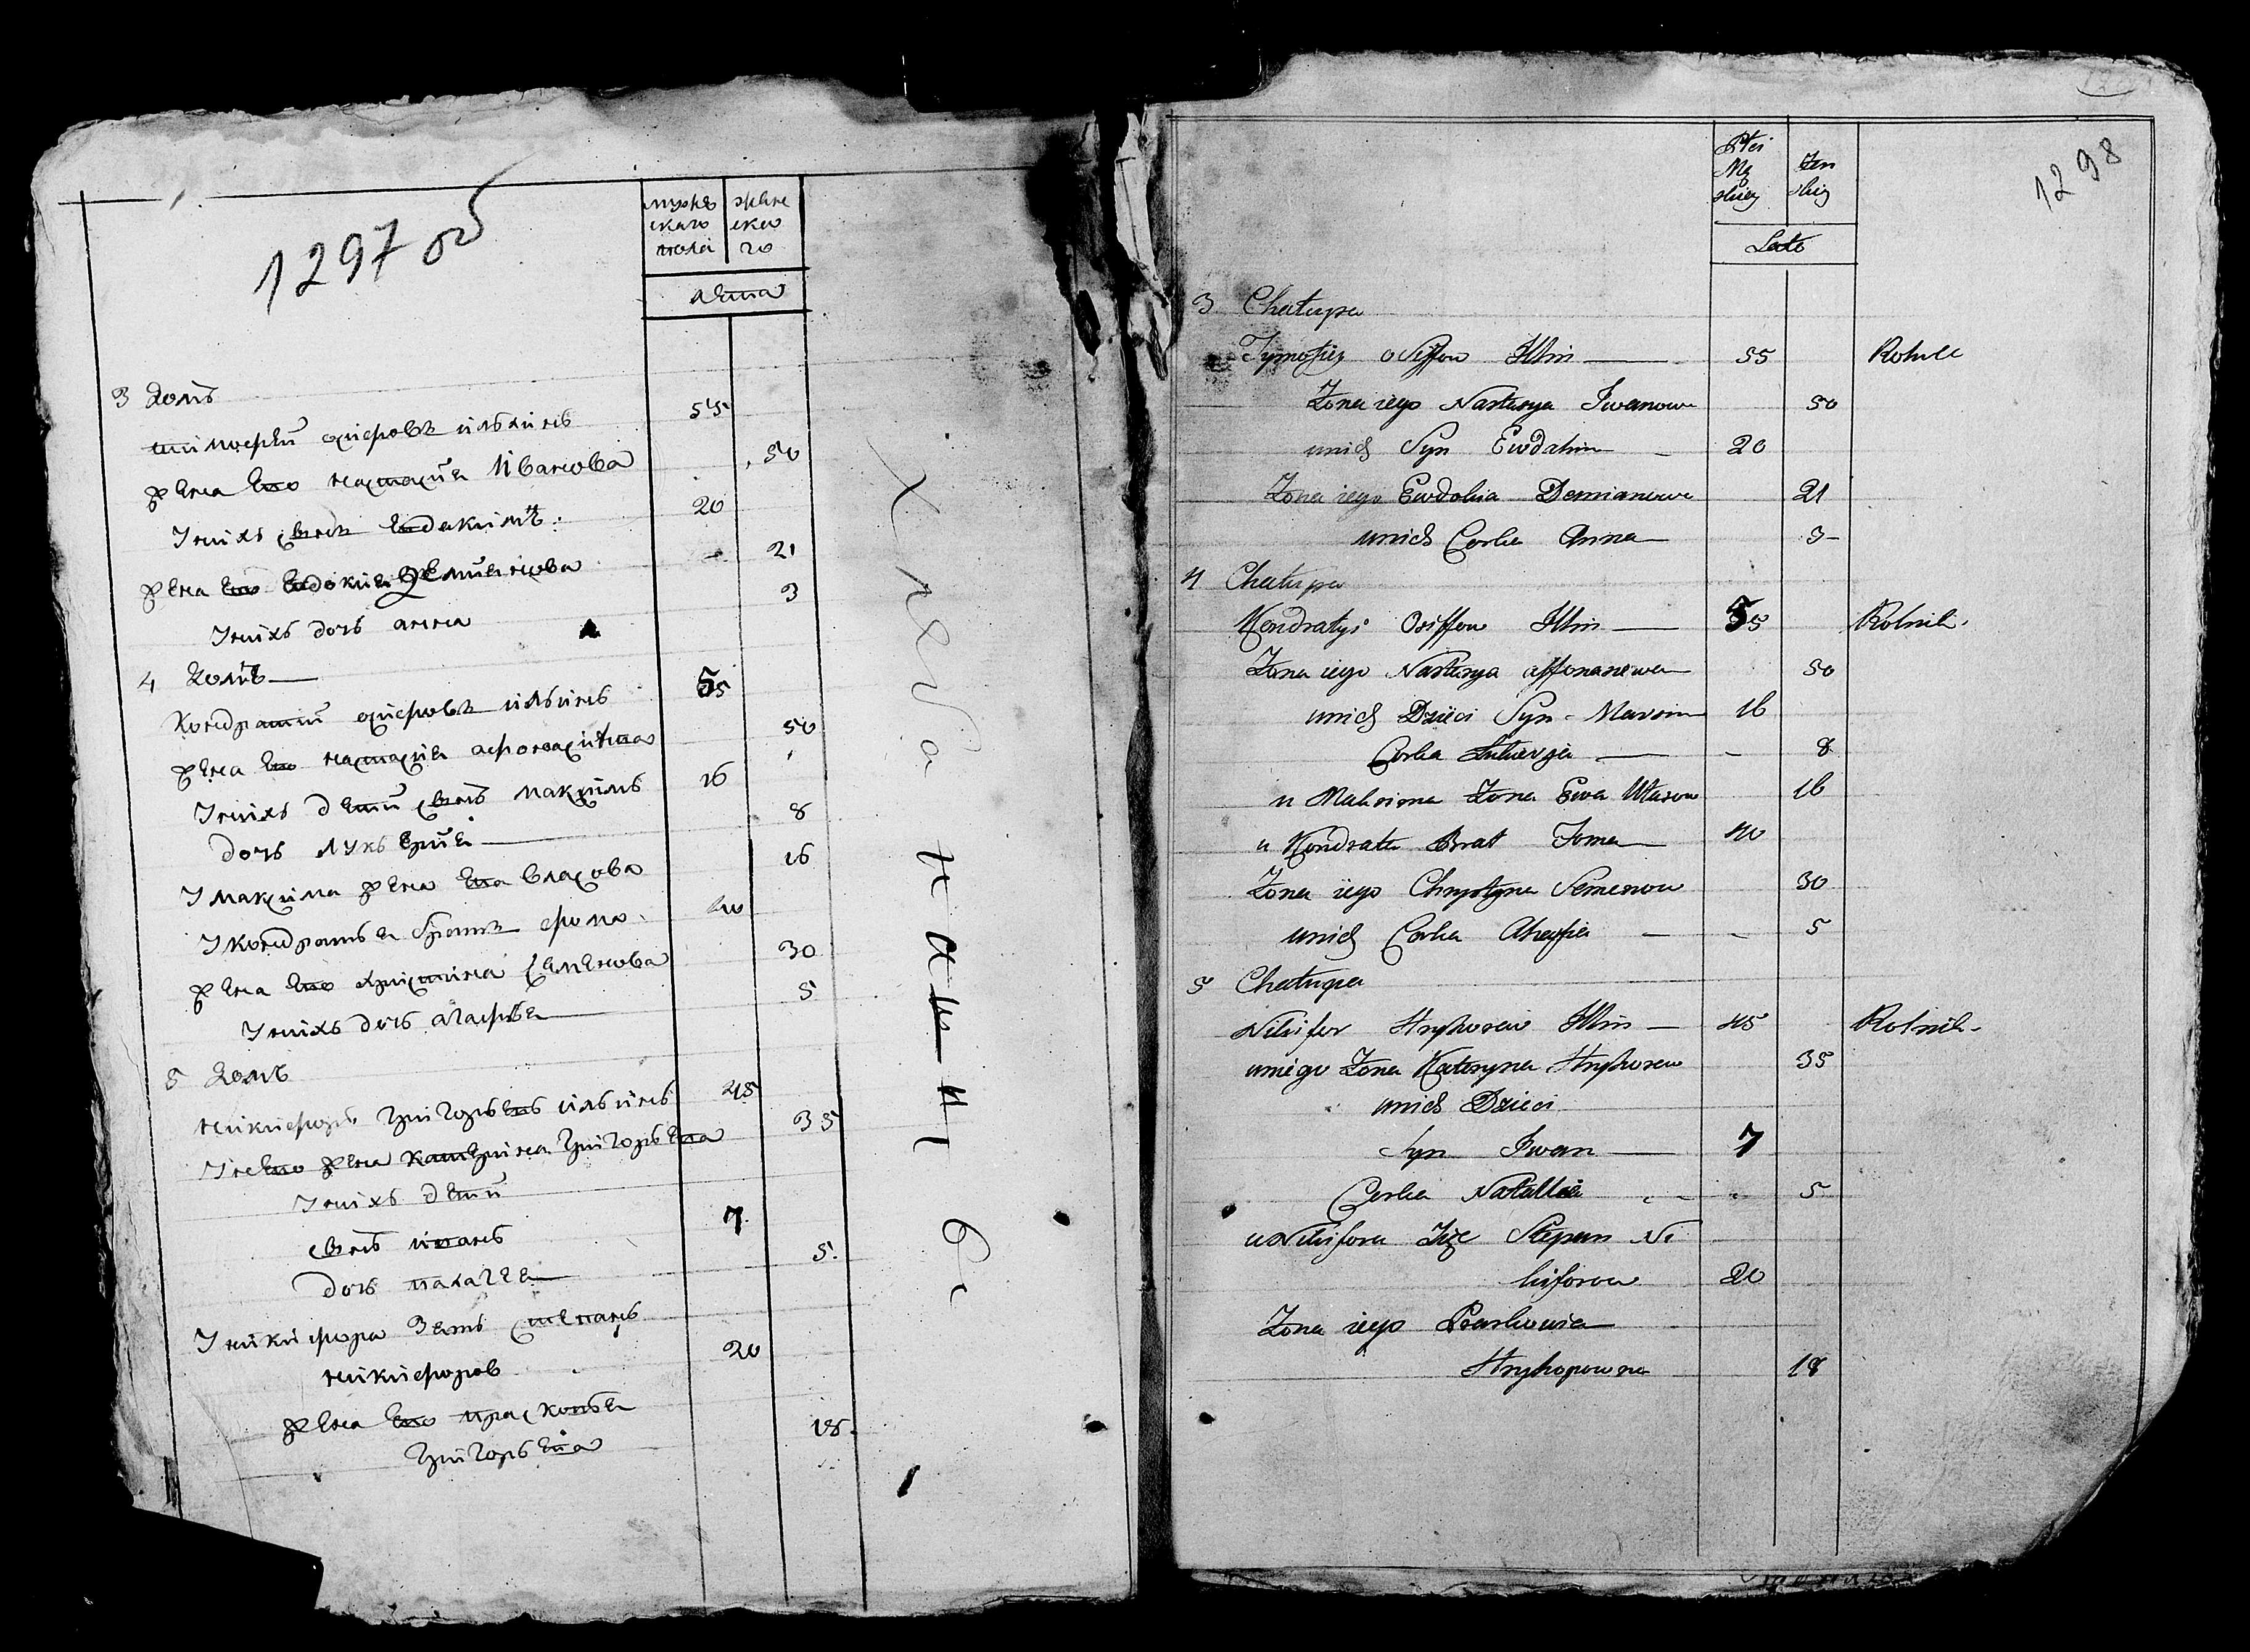 1297 об
мужес
каго
пола
женс
каго
лета
3 Домъ
Тимофей Осифовъ Ильинъ 55
Жена Ево Настасия Иванова 50
У них сынъ Евдакимъ 20
Жена Ево Евдокия Демианова 21
У нихъ дочь анна 3
4 Домъ
Кондратий Осифовъ Ильинъ 55
Жена Ево Настасия афонасиева 50
У нихъ дети сынъ Максимъ 16
дочь Лукерия 8
У Максима Жена Ева Власова 16
У Кондратья братъ фома 40
Жена Ево Христина Семенова 30
У нихъ дочь агафья 5
5 Домъ
Никифоръ Григорьевъ Ильинъ 45
У нево Жена Катерина Григорьева 35
У нихъ дети
сынъ иванъ 7
дочь 5
У Никифора Зять Степанъ
Никифоров 20
Жена Ево Прасковья
Григорьева 18
Хлебапашеис
1298
Płci
Mę
skiey
Żen
skiey
Lato
3 Chałupa
Tymofiey Osiffow Illin 55 Rolnik
Żona iego Nastasya Iwanowa 50
unich Syn Ewdakim 20
Żona iego Ewdokia Demianowa 21
unich Corka Anna 3
4 Chałupa
Kondratyi Osiffow Illin 55 Rolnik
Żona iego Nastasya affonasewa 50
unich Dzieci Syn Maxim 16
Corka Lukierya 8
u Maksima Żona Ewa Własow 16
u Kondrata Brat Foma 40
Żona iego Chrystyna Semenow 30
unich Corka Ahafia 5
5 Chałupa
Nikifor Hryhorew Illin 45 Rolnik
uniego Żona Kateryna Hryhorew 35
unich Dzieci
Syn Iwan 7
Corka Natallia 5
u Nikifora Zięc Stepan Ni
kiforow 20
Żona iego Praskowia
Hryhorowna 18